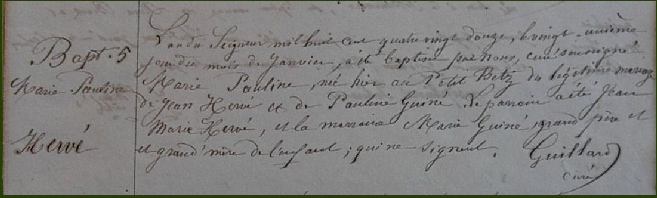 Bapt. 5
Marie Pauline
Hervé
L'an du Seigneur mil huit cent quatre vingt douze, le vingt-unième
jour du mois de Janvier, a été baptisé par nous, curé soussigné
Marie Pauline, né hier au Petit Betz du légitime mariage
de Jean Hervé et de Pauline Guiné. Le parrain a été Jean
Marie Hervé, et la marraine Marie Guiné, grand père et
et grand'mère de l'enfant ; qui ne signent. Guillard
curé